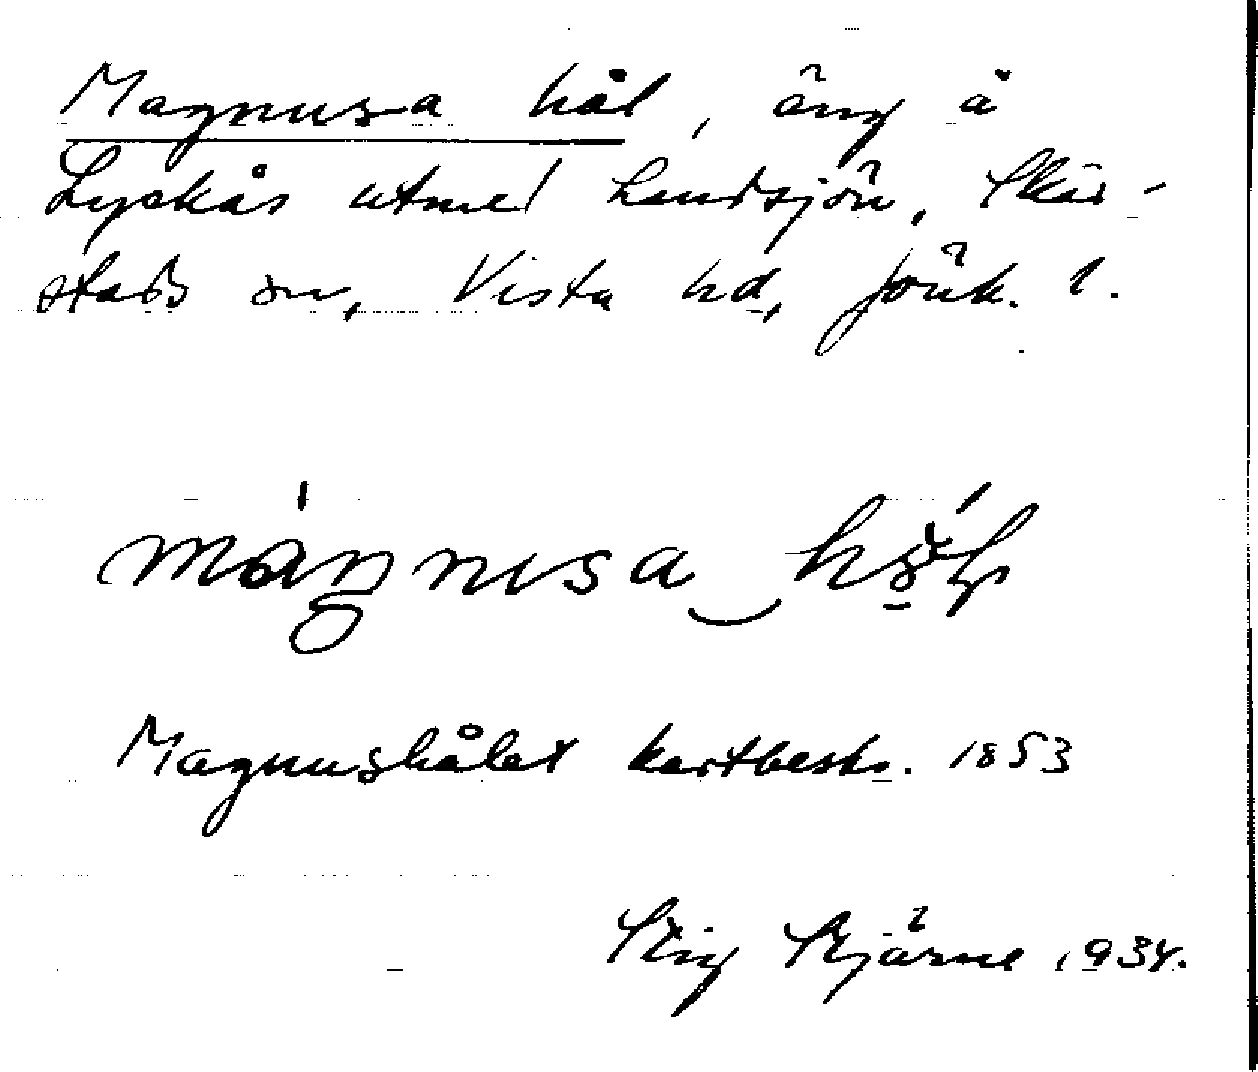 Magnusa hål, äng å
Lyckås utmed Landsjön, Skär-
stads sn, Vista hd, Jönk. l.
Magnushålet kartbeskr. 1853
Stig Stjärne 1934.